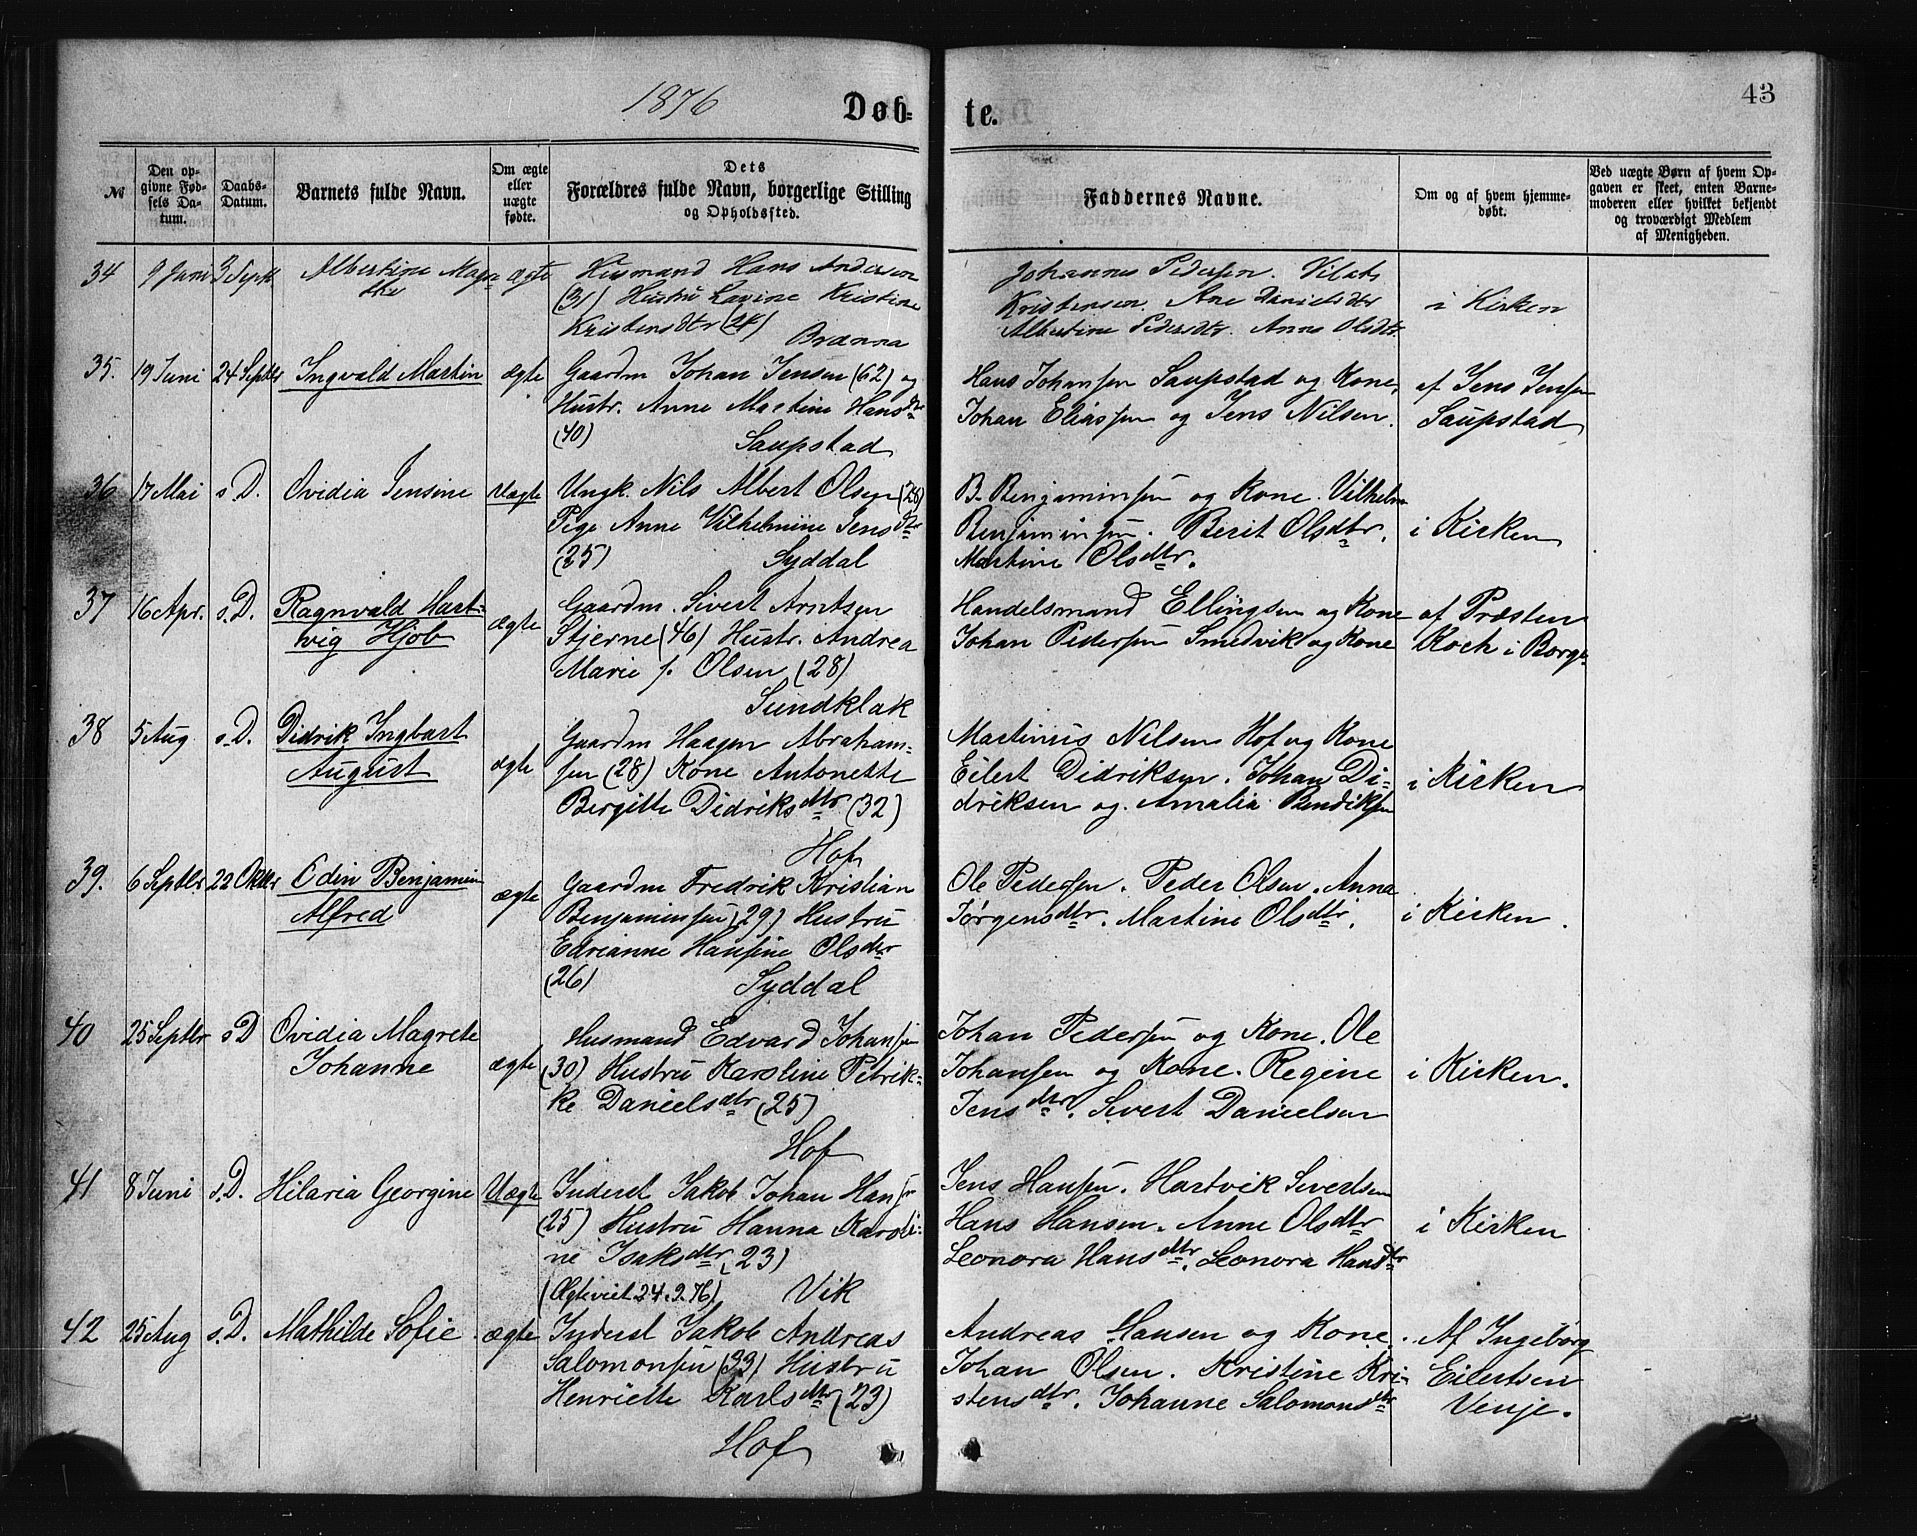 1876
Døb-
te.
43
№
Den op-
givne Fød-
sels Da-
tum.
Daabs-
Datum.
Barnets fulde Navn.
Om ægte
eller
uægte
fødte.
Dets
Forældres fulde Navn, borgerlige Stilling
og Opholdssted.
Faddernes Navne.
Om og af hvem hjemme-
døbt.
Ved uægte Børn af hvem Op-
gaven er skeet, enten Barne-
moderen eller hvilket bekjendt
og troværdigt Medlem
af Menigheden.
34
9 Juni
3 Sept
Albertine Magre
the
ægte
Husmand Hans Andersen
(31) Hustru Lavine Kristine
Kristensdtr (24)
Brænna
Johannes Pedersen. Vilats
Kristensen. Ane Danielsdtr
Albertine Pedersdtr. Anne Olsdtr.
i Kirken
35.
19 Juni
24 Septbr
Ingvald Martin
ægte
Gaardm Johan Jensen (62) og
Hustr. Anne Martine Hansdtr
(40)
Saupstad
Hans Johansen Saupstad og Kone,
Johan Eliassen og Jens Nilsen.
af Jens Jensen
Saupstad
36
17 Mai
s. D.
Ovidia Jensine
Uægte
Ungk. Nils Albert Olsen (28)
Pige Anne Vilhelmine Jensdtr
(25)
Syddal
B. Benjaminsen og Kone. Vilhelm
Benjaminsen. Berit Olsdtr.
Martine Olsdtr.
i Kirken
37
16 Apr.
s. D.
Ragnvald Hart-
vig Hjob
ægte
Gaardm. Sivert Arntsen
Stjerne (46) Hustr. Andrea
Marie f. Olsen (28)
Sundklak
Handelsmand Ellingsen og Kone
Johan Pedersen Smedvik og Kone
af Præsten
Koch i Borge
38
5 Aug
s. D.
Didrik Ingbart
August
ægte
Gaardm Haagen Abraham-
sen (28) Kone Antonette
Bergitte Didriksdtr (32)
Hof
Martinus Nilsen Hof og Kone
Eilert Didriksen. Johan Di-
driksen og Amalia Bendiksen
i Kirken
39.
6 Septbr
22 Oktbr
Edin Benjamin
Alfred
ægte
Gaardm Fredrik Kristian
Benjaminsen (29) Hustru
Edrianne Hansine Olsdtr
(26)
Syddal
Ole Pedersen. Peder Olsen. Anna
Jørgensdtr. Martine Olsdtr.
i Kirken.
40
25 Septbr
s D
Ovidia Magrete
Johanne
ægte
Husmand Edvard Johansen
(30) Hustru Karoline Petrik-
ke Danielsdtr (25)
Hof
Johan Pedersen og Kone. Ole
Johansen og Kone. Regine
Jensdtr. Sivert Danielsen
i Kirken.
41
8 Juni
s. D.
Hilaria Georgine
Uægte
Inderst Jakob Johan Hansen
(25) Hustru Hanna Karoli-
ne Isaksdtr (23)
(Ægteviet 24.9.76)
Vik
Jens Hansen. Hartvik Sivertsen
Hans Hansen. Anne Olsdtr
Leonora Hansdtr. Leonora Hansdtr
i Kirken
42
25 Aug
s. D.
Mathilde Sofie
ægte
Inderst Jakob Andreas
Salomonsen (33) Hustru
Henriette Karlsdtr (23)
Hof
Andreas Hansen og Kone.
Johan Olsen. Kristine Kri-
stensdtr. Johanne Salomonsdtr
Af Ingeborg
Eilertsen
Venje.